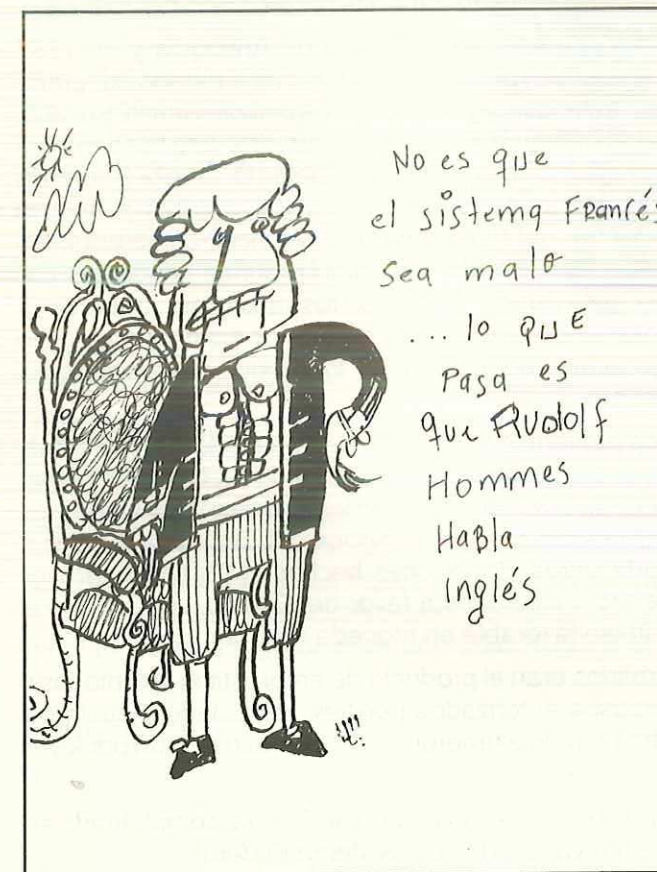 No es que
el sistema Francés
sea malo
... lo QUE
Pasa es
que Rudolf
Hommes
Habla
Inglés